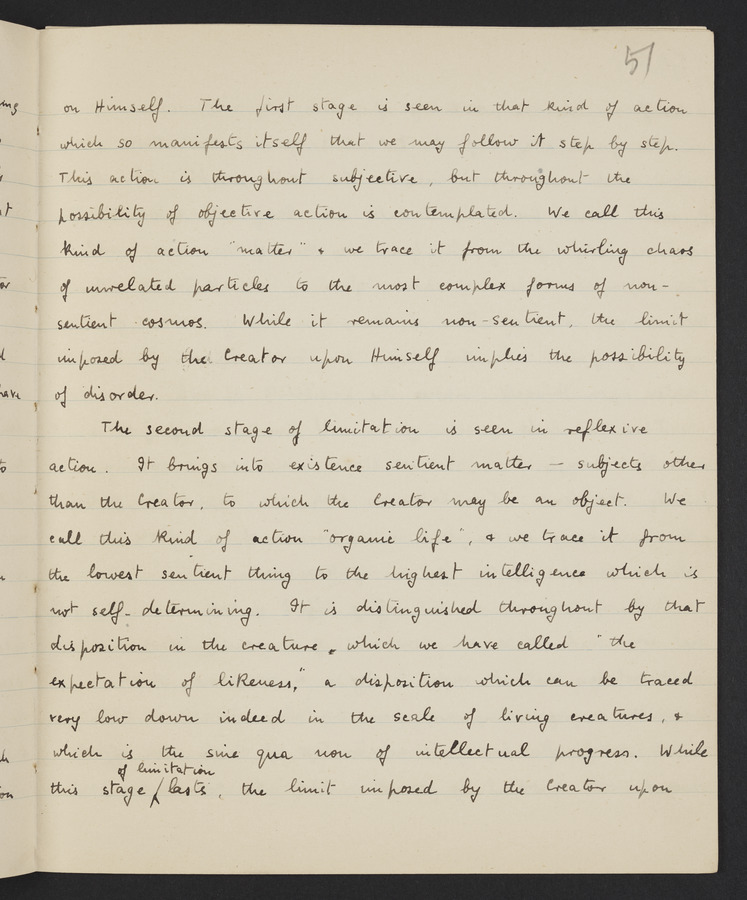 51
on Himself. The first stage is seen in that kind of action
which so manifests itself that we may follow it step by step.
This action is throughout subjective, but throughout the
possibility of objective action is contemplated. We call this
kind of action "matter" & we trace it from the whirling chaos
of unrelated particles to the most complex forms of non-
sentient cosmos. While it remains non-sentient, the limit
imposed by the Creator upon Himself implies the possibility
of disorder.
The second stage of limitation is seen in reflexive
action. It brings into existence sentient matter — subjects other
than the Creator, to which the Creator may be an object. We
call this kind of action "organic life", & we trace it from
the lowest sentient thing to the highest intelligence which is
not self-determining. It is distinguished throughout by that
disposition in the creature, which we have called "the
expectation of likeness," a disposition which can be traced
very low down indeed in the scale of living creatures, &
which is the sine qua non of intellectual progress. While
of limitation
this stage / lasts, the limit imposed by the Creator upon